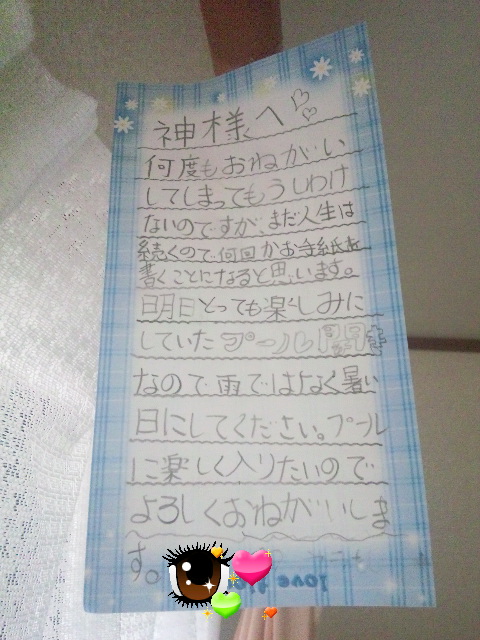 神様へ
何度もおねがい
してしまってもうしわけ
ないのですが、まだ人生は
続くので何回かお手紙を
書くことになると思います。
明日とっても楽しみに
していたプール開き
なので雨ではなく暑い
日にしてください。プール
に楽しく入りたいので
よろしくおねがいしま
す。
love